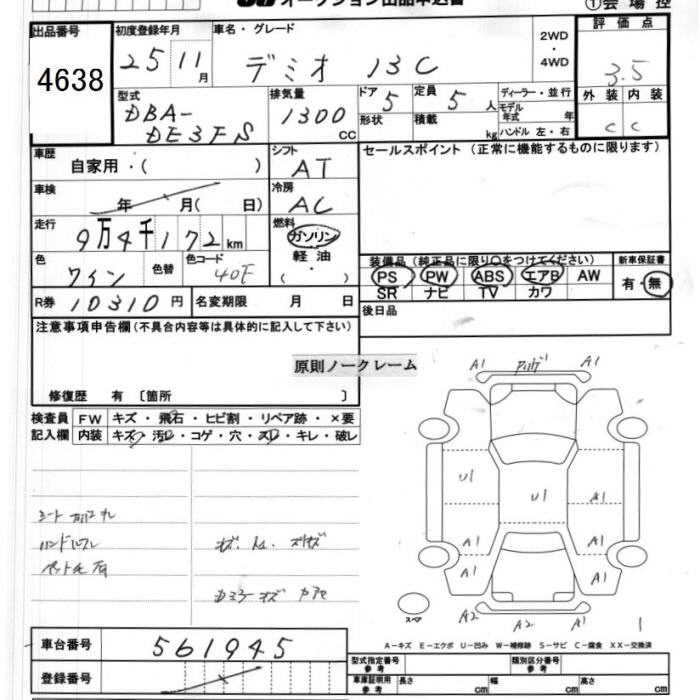 オークション出品申込書
①会場控
出品番号
4638
初度登録年月
25 11 月
車名・グレード
デミオ 13C
2WD
・
4WD
評価点
3.5
外装 内装
C C
型式
DBA-
DE3FS
排気量
1300
cc
ドア 5
形状
定員 5 人
積載 kg
ディーラー・並行
モデル年式 年
ハンドル 左・右
車歴
自家用・( )
シフト
AT
セールスポイント (正常に機能するものに限ります)
車検
年 月( 日)
冷房
AC
走行
9万4千172km
燃料
ガソリン
軽油
( ・ )
色
ワイン
色替
色コード
40E
装備品 (純正品に限り○をつけてください)
PS PW ABS エアB AW
SR ナビ TV カワ
新車保証書
有・無
R券 10310円
名変期限 月 日
後日品
注意事項申告欄(不具合内容等は具体的に記入して下さい)
原則ノークレーム
修復歴 有 〔箇所 〕
検査員
記入欄
FW キズ・飛石・ヒビ割・リペア跡・×要
内装 キズ・汚レ・コゲ・穴・スレ・キレ・破レ
A1 A1
U1 U1 A1
A1 A1
A1 A1
A2 A2 A1
スペア
1
A-キズ E-エクボ U-凹み W-補修跡 S-サビ C-腐食 XX-交換済
車台番号 561945
登録番号
型式指定番号
参考
類別区分番号
参考
車庫証明用
参考
長さ cm 幅 cm 高さ cm